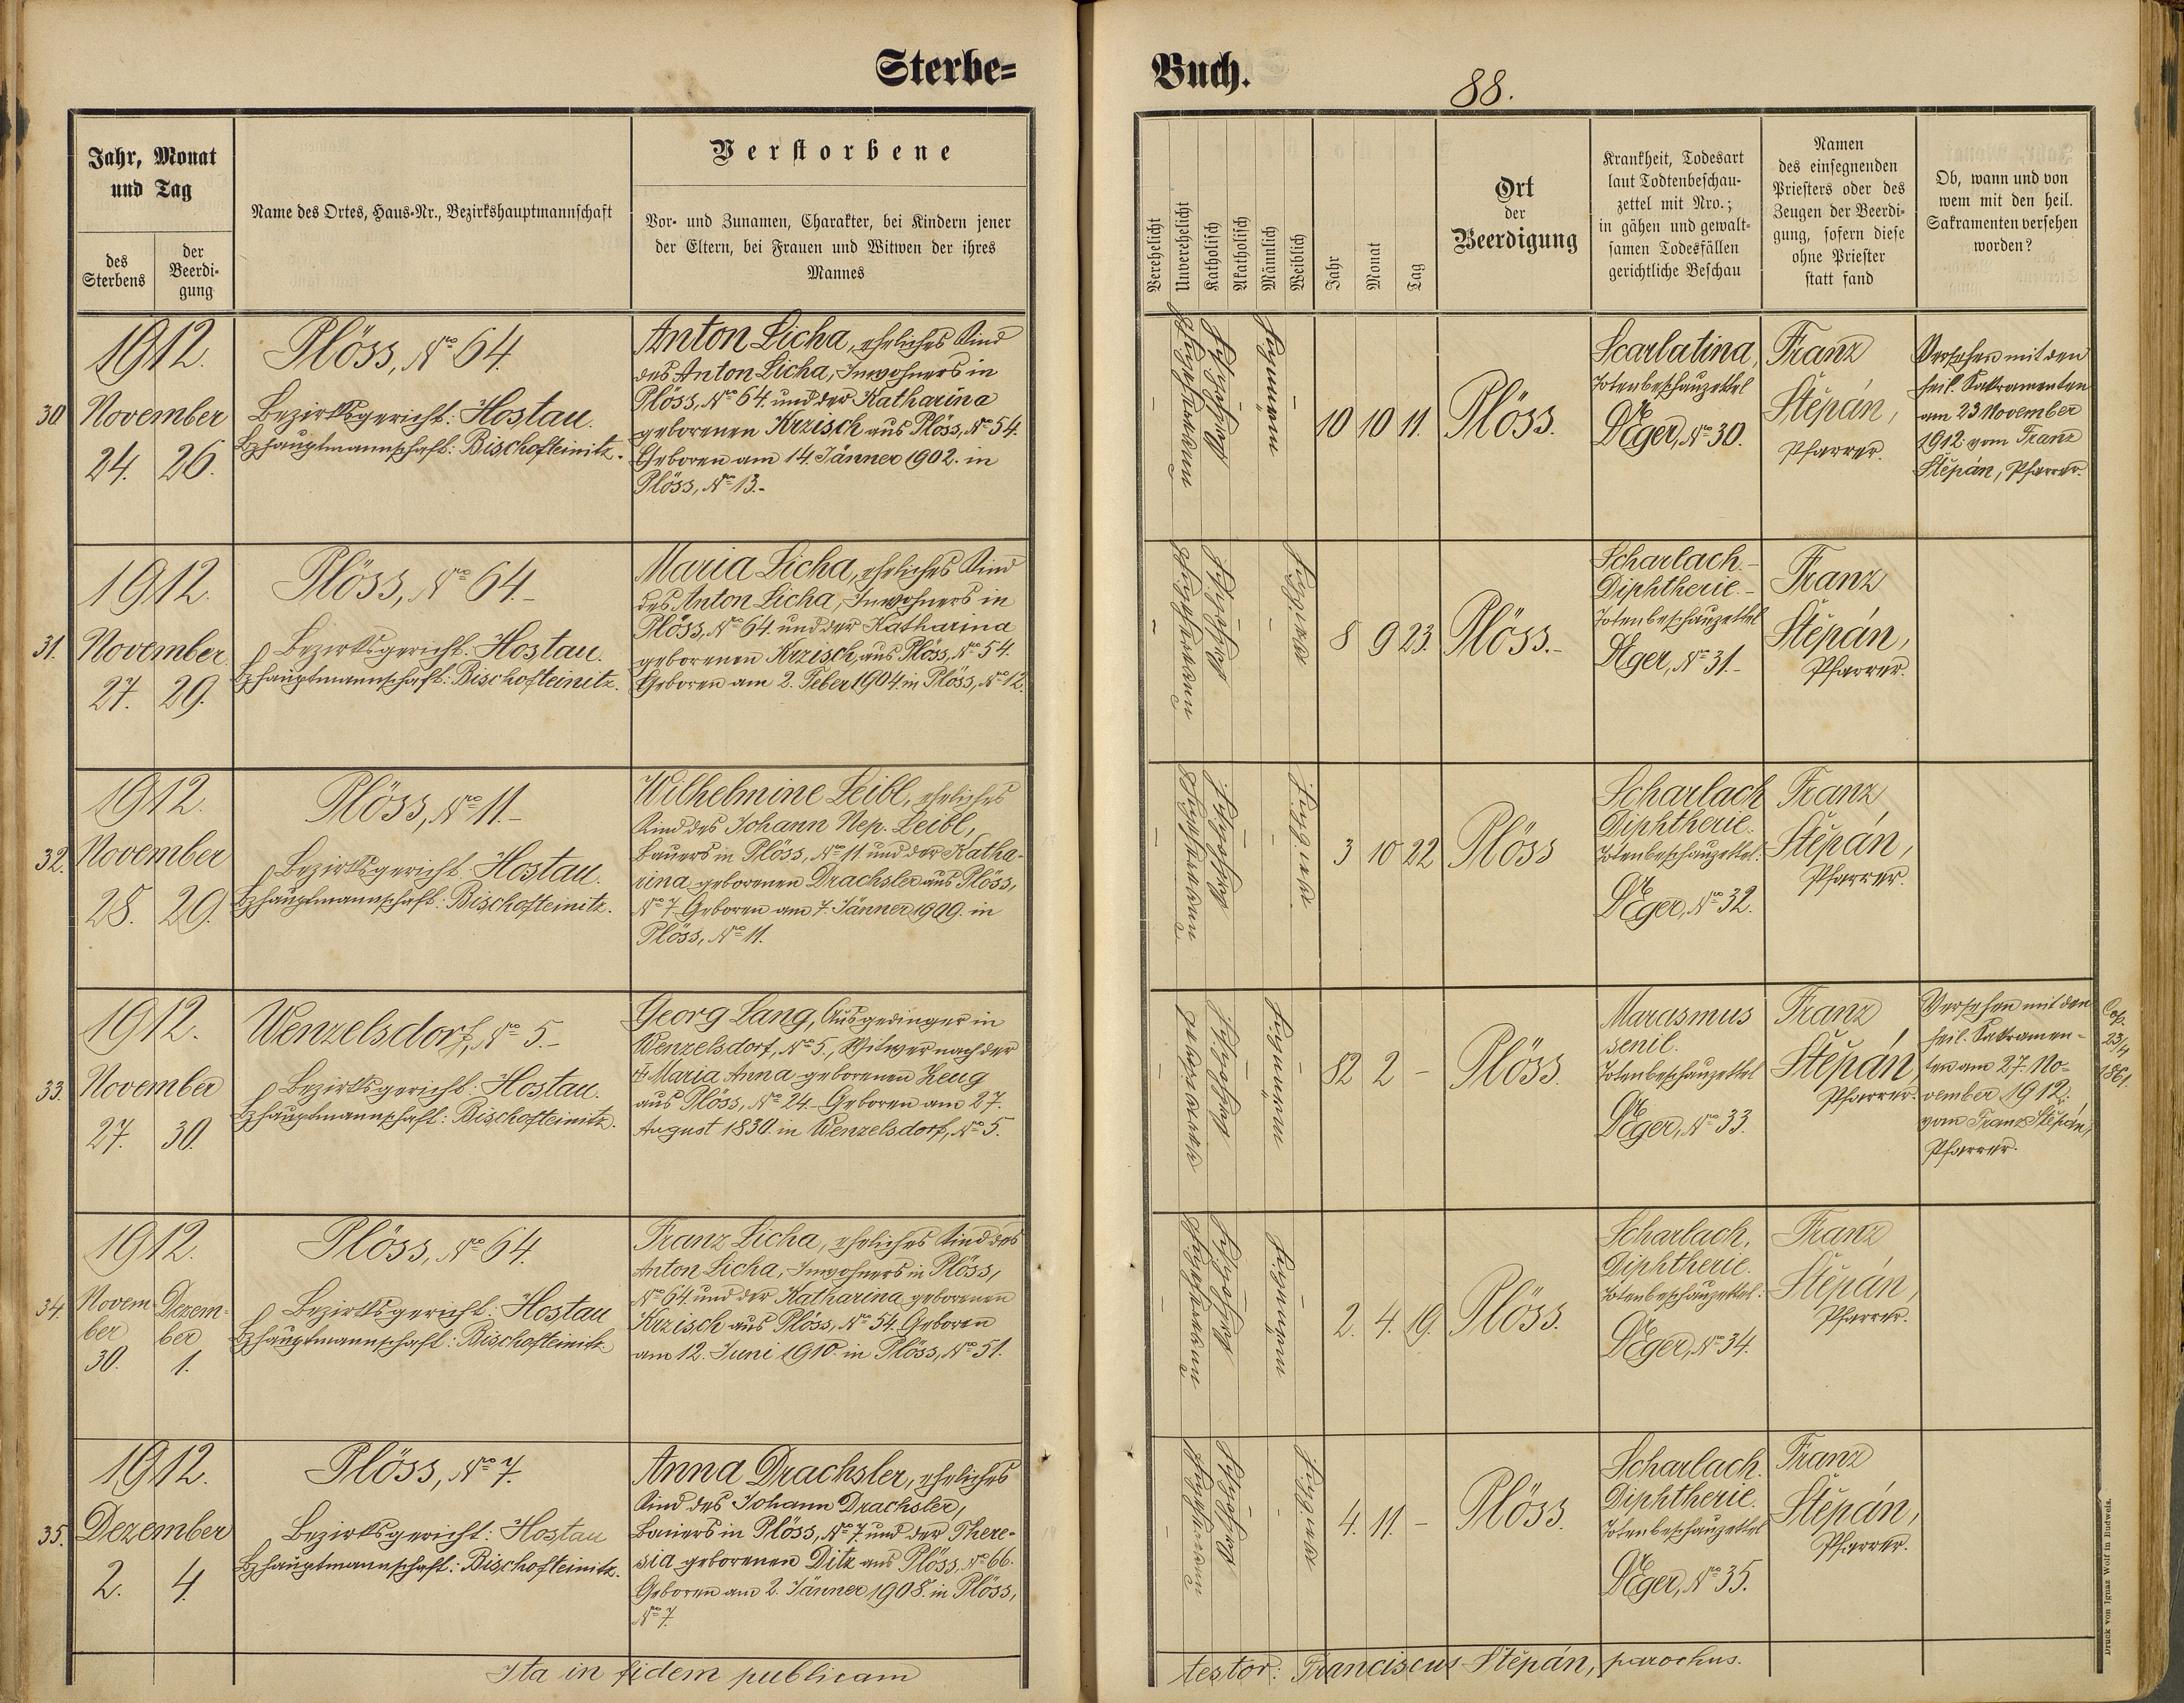 Sterbe=
Buch.
88.
Jahr, Monat
und Tag
des
Sterbens
der
Beerdi-
gung
Name des Ortes, Haus-Nr., Bezirkshauptmannschaft
Verstorbene
Vor- und Zunamen, Charakter, bei Kindern jener
der Eltern, bei Frauen und Witwen der ihres
Mannes
Verehelicht
Unverehelicht
Katholisch
Akatholisch
Männlich
Weiblich
Jahr
Monat
Tag
Ort
der
Beerdigung
Krankheit, Todesart
laut Todtenbeschau-
zettel mit Nro.;
in gähen und gewalt-
samen Todesfällen
gerichtliche Beschau
Namen
des einsegnenden
Priesters oder des
Zeugen der Beerdi-
gung, sofern diese
ohne Priester
statt fand
Ob, wann und von
wem mit den heil.
Sakramenten versehen
worden?
30
1912.
November
24. 26.
Plöss, No 64.
Bezirksgericht: Hostau.
Bzhauptmannschaft: Bischofteinitz.
Anton Licha, eheliches Kind
des Anton Licha, Inwohners in
Plöss, No 64. und der Katharina
geborenen Krzisch aus Plöss, No 54.
Geboren am 14. Jänner 1902. in
Plöss, No 13.-
10 10 11.
Plöss.
Scarlatina,
Totenbeschauzettel
Eger, No 30.
Franz
Štěpán,
Pfarrer.
Versehen mit den
heil. Sakramenten
am 23 November
1912 vom Franz
Štěpán, Pfarrer.
31.
1912.
November
27. 29.
Plöss, No 64.-
Bezirksgericht: Hostau.
Bzhauptmannschaft: Bischofteinitz.
Maria Licha, eheliches Kind
des Anton Licha, Inwohners in
Plöss, No 64. und der Katharina
geborenen Krzisch, aus Plöss, No 54.
Geboren am 2. Feber 1904. in Plöss, No 12.
8 9 23.
Plöss.-
Scharlach.-
Diphtherie.-
Totenbeschauzettel
Eger, No 31.-
Franz
Štěpán,
Pfarrer.
32.
1912.
November
28. 29.
Plöss, No 11.-
Bezirksgericht: Hostau.
Bzhauptmannschaft: Bischofteinitz.
Wilhelmine Leibl, eheliches
Kind des Johann Nep. Leibl,
Bauers in Plöss, No 11 und der Katha-
rina geborenen Drachsler aus Plöss,
No 7. Geboren am 7. Jänner 1909. in
Plöss, No 11.
3 10 22
Plöss
Scharlach
Diphtherie.
Totenbeschauzettel:
Eger, No 32.
Franz
Štěpán,
Pfarrer.
33.
1912.
November
27. 30.
Wenzelsdorf, No 5.-
Bezirksgericht: Hostau.
Bzhauptmannschaft: Bischofteinitz.
Georg Lang, Ausgedinger in
Wenzelsdorf, No 5., Witwer nach der
Maria Anna geborenen Zeug
aus Plöss, No 24. Geboren am 27.
August 1830. in Wenzelsdorf, No 5.
82 2 -
Plöss.
Marasmus
senil.
Totenbeschauzettel
Eger, No 33.
Franz
Štěpán
Pfarrer.
Versehen mit den
heil. Sakramen-
ten am 27. No-
vember 1912.
vom Franz Štěpán,
Pfarrer.
Cop.
23/4
1861.
34.
1912.
Novem- Dezem-
ber ber
30. 1.
Plöss, No 64.
Bezirksgericht: Hostau
Bzhauptmannschaft: Bischofteinitz.
Franz Licha, eheliches Kind des
Anton Licha, Inwohners in Plöss,
No 64. und der Katharina geborenen
Krzisch aus Plöss, No 54. Geboren
am 12. Juni 1910. in Plöss, No 51.
2. 4. 19.
Plöss.
Scharlach,
Diphtherie.
Totenbeschauzettel:
Eger, No 34.
Franz
Štěpán,
Pfarrer.
35.
1912.
Dezember
2. 4.
Plöss, No 7.
Bezirksgericht: Hostau
Bzhauptmannschaft: Bischofteinitz.
Anna Drachsler, eheliches
Kind des Johann Drachsler,
Bauers in Plöss, No 7. und der There-
sia geborenen Ditz aus Plöss, No 66.
Geboren am 2. Jänner 1908. in Plöss,
No 7.
4. 11. -
Plöss.
Scharlach.
Diphtherie.
Totenbeschauzettel
Eger, No 35.
Franz
Štěpán,
Pfarrer.
Ita in fidem publicam
testor: Franciscus Štěpán, parochus.
Druck von Ignaz Wolf in Budweis.